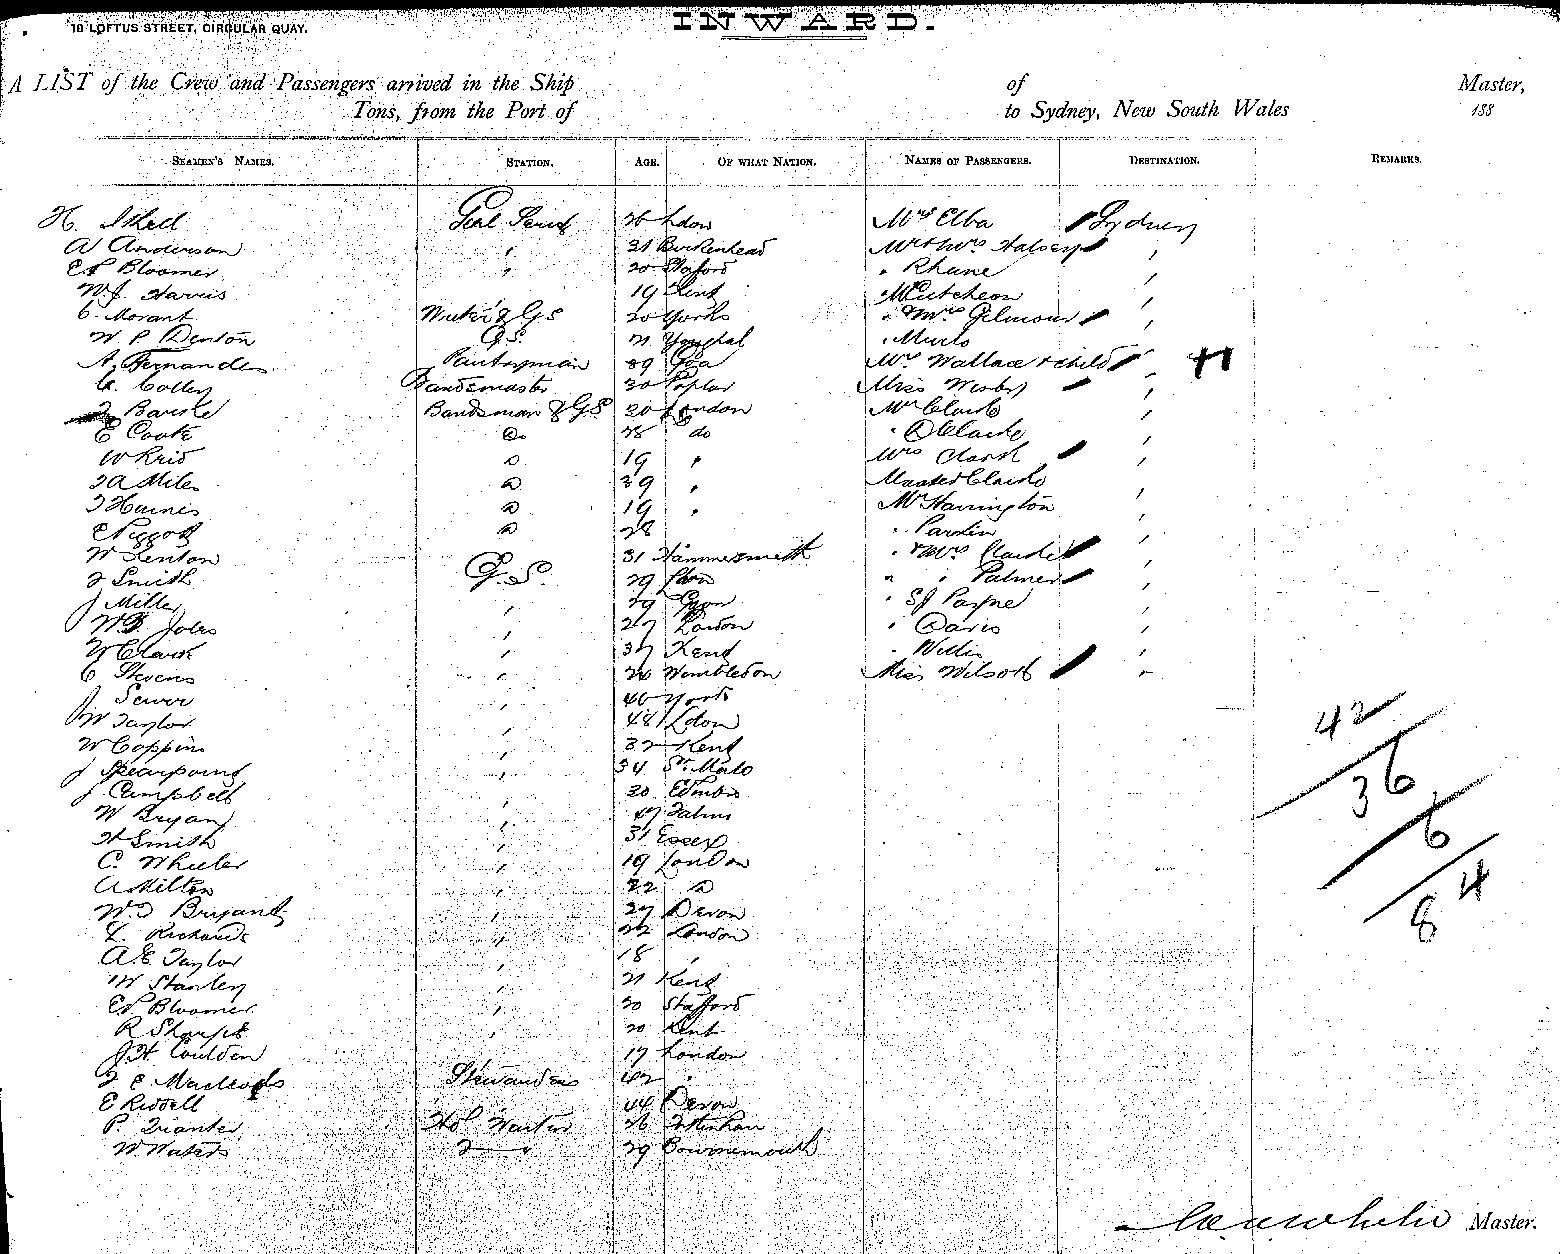 INWARD.
18 LOFTUS STREET, CIRCULAR QUAY.
A LIST of the Crew and Passengers arrived in the Ship of Master,
Tons, from the Port of to Sydney, New South Wales 188
SEAMEN'S NAMES. STATION. AGE. OF WHAT NATION. NAMES OF PASSENGERS. DESTINATION. REMARKS.
H. Genl Servt 26 Ldon Mrs Elba Sydney
A Anderson " 31 Birkenhead Mr & Mrs Halsey "
E P Bloomer " 20 Staford " Rhane "
W J Harris 19 Kent " McCutcheon "
C. Morant & GS 20 Yorks " Mrs Gilmour "
W. P Denton GS. 21 Youghal " "
A, Fernandes Pantryman 39 Goa Mrs Wallace & child "
C. Colley Bandsmaster 30 Poplar Miss "
Bandsman & GS 20 London Mr Clarke "
E Cooke Do 28 do " "
W Reid Do 19 " Mrs Clark "
J A Miles Do 39 " Master Clarke "
J Haines Do 19 " Mr Harrington "
E Piggott Do 28 " Pardin "
W Lenton 31 Hammersmith " Mrs "
J Smith G.S. 29 " " Palmer "
J Miller " 29 " S J Payne "
W. Joles " 27 London " Davis "
W Clark " 37 Kent " Willis "
C Stevens " 26 Wimbledon Miss Wilson "
J " 40 York
W Taylor " 48 Ldon
W Coppins " 32 Kent
J Spearpoint " 34 St. Malo
J Campbell " 30 Edinbro
W Bryan " 47 Falms
H Smith " 31 Essex
C. Wheeler " 19 London
A Milton " 22 Do
W. J Bryant " 27 Devon
L. Richards " 22 London
A E Taylor " 18 "
W Stanley " 21 Kent
E P Bloomer " 20 Stafford
R Sharpe " 20 Kent
J H Coulden 17 London
J E Macleods Stewardess 42 "
E Riddell 44 Devon
P. Trianter Hd Waiter 26 Tottenham
W Waters 29 Bournemouth
42
36
6
84
Master.